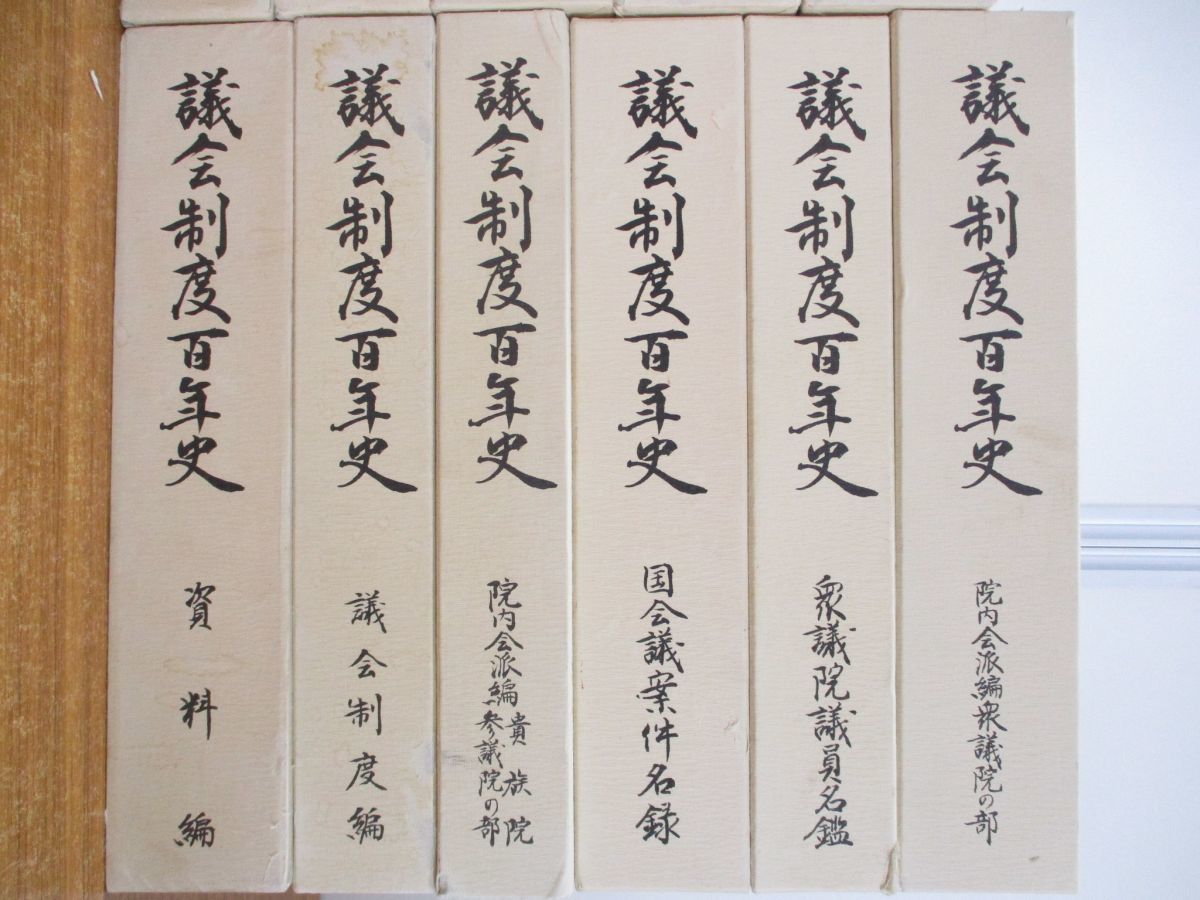 議会制度百年史
資料編
議会制度編
議会制度百年史
議会制度百年史
院内会派編貴族院
参議院の部
議会制度百年史
国会議案件名録
議会制度百年史
衆議院議員名鑑
議会制度百年史
院内会派編衆議院の部